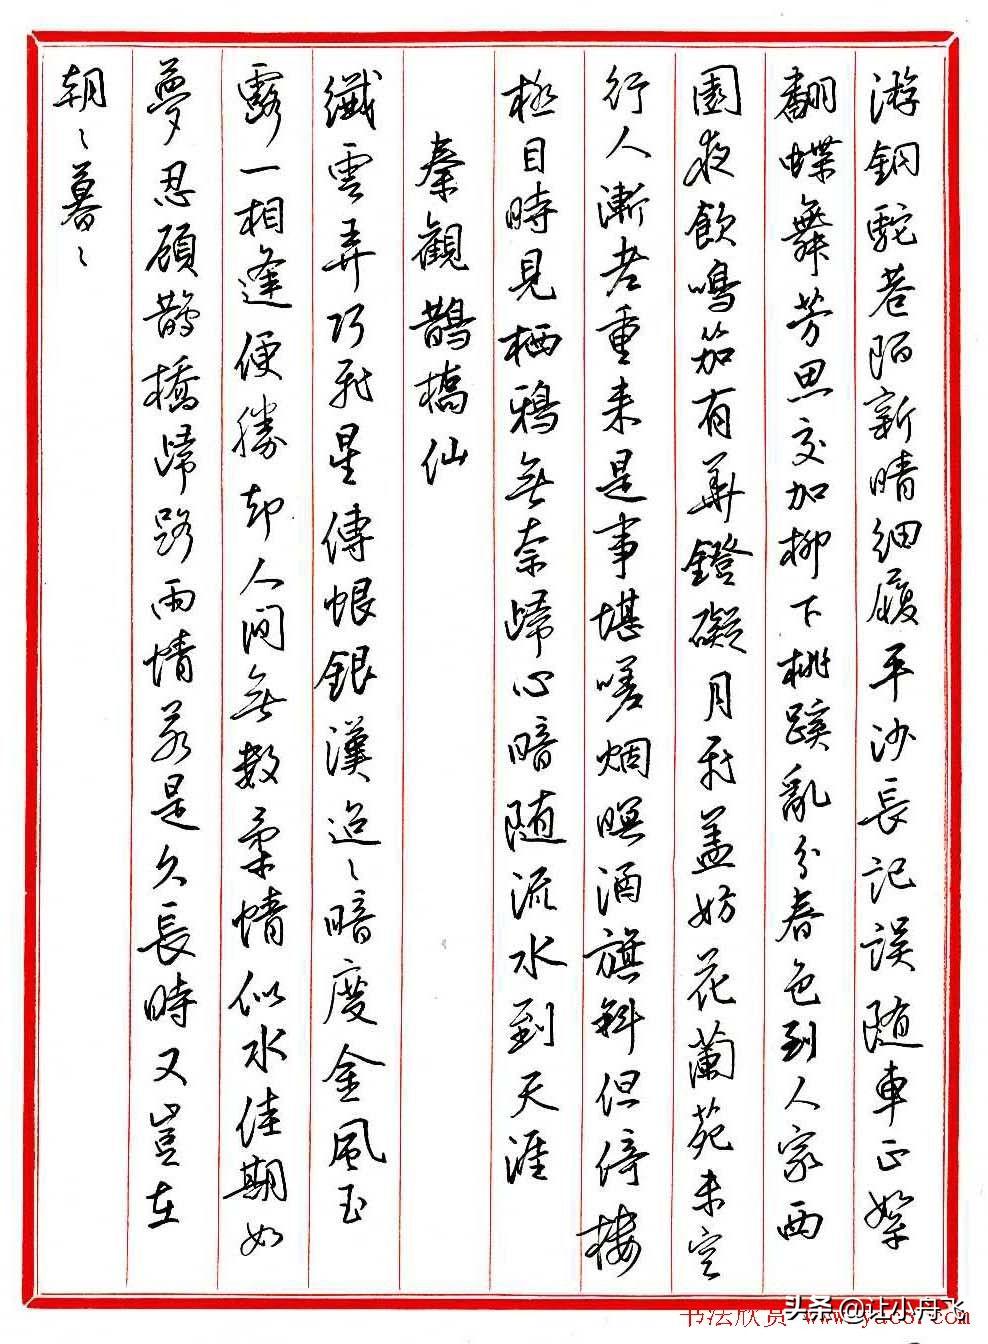 游銅駝巷陌新晴細履平沙長記誤随車正絮
翻蝶舞芳思交加柳下桃蹊亂分春色到人家西
園夜飲鳴笳有華鐙礙月飛蓋妨花蘭苑未空
行人漸老重来是事堪嗟烟暝酒旗斜但倚樓
極目時見栖鴉無奈歸心暗随流水到天涯
秦觀鵲橋仙
纖雲弄巧飛星傳恨銀漢迢〻暗度金風玉
露一相逢便勝却人间無數柔情似水佳期如
夢忍顧鵲橋歸路兩情若是久長時又豈在
朝〻暮〻
书法欣赏 www.yac87.com
头条 @让小舟飞